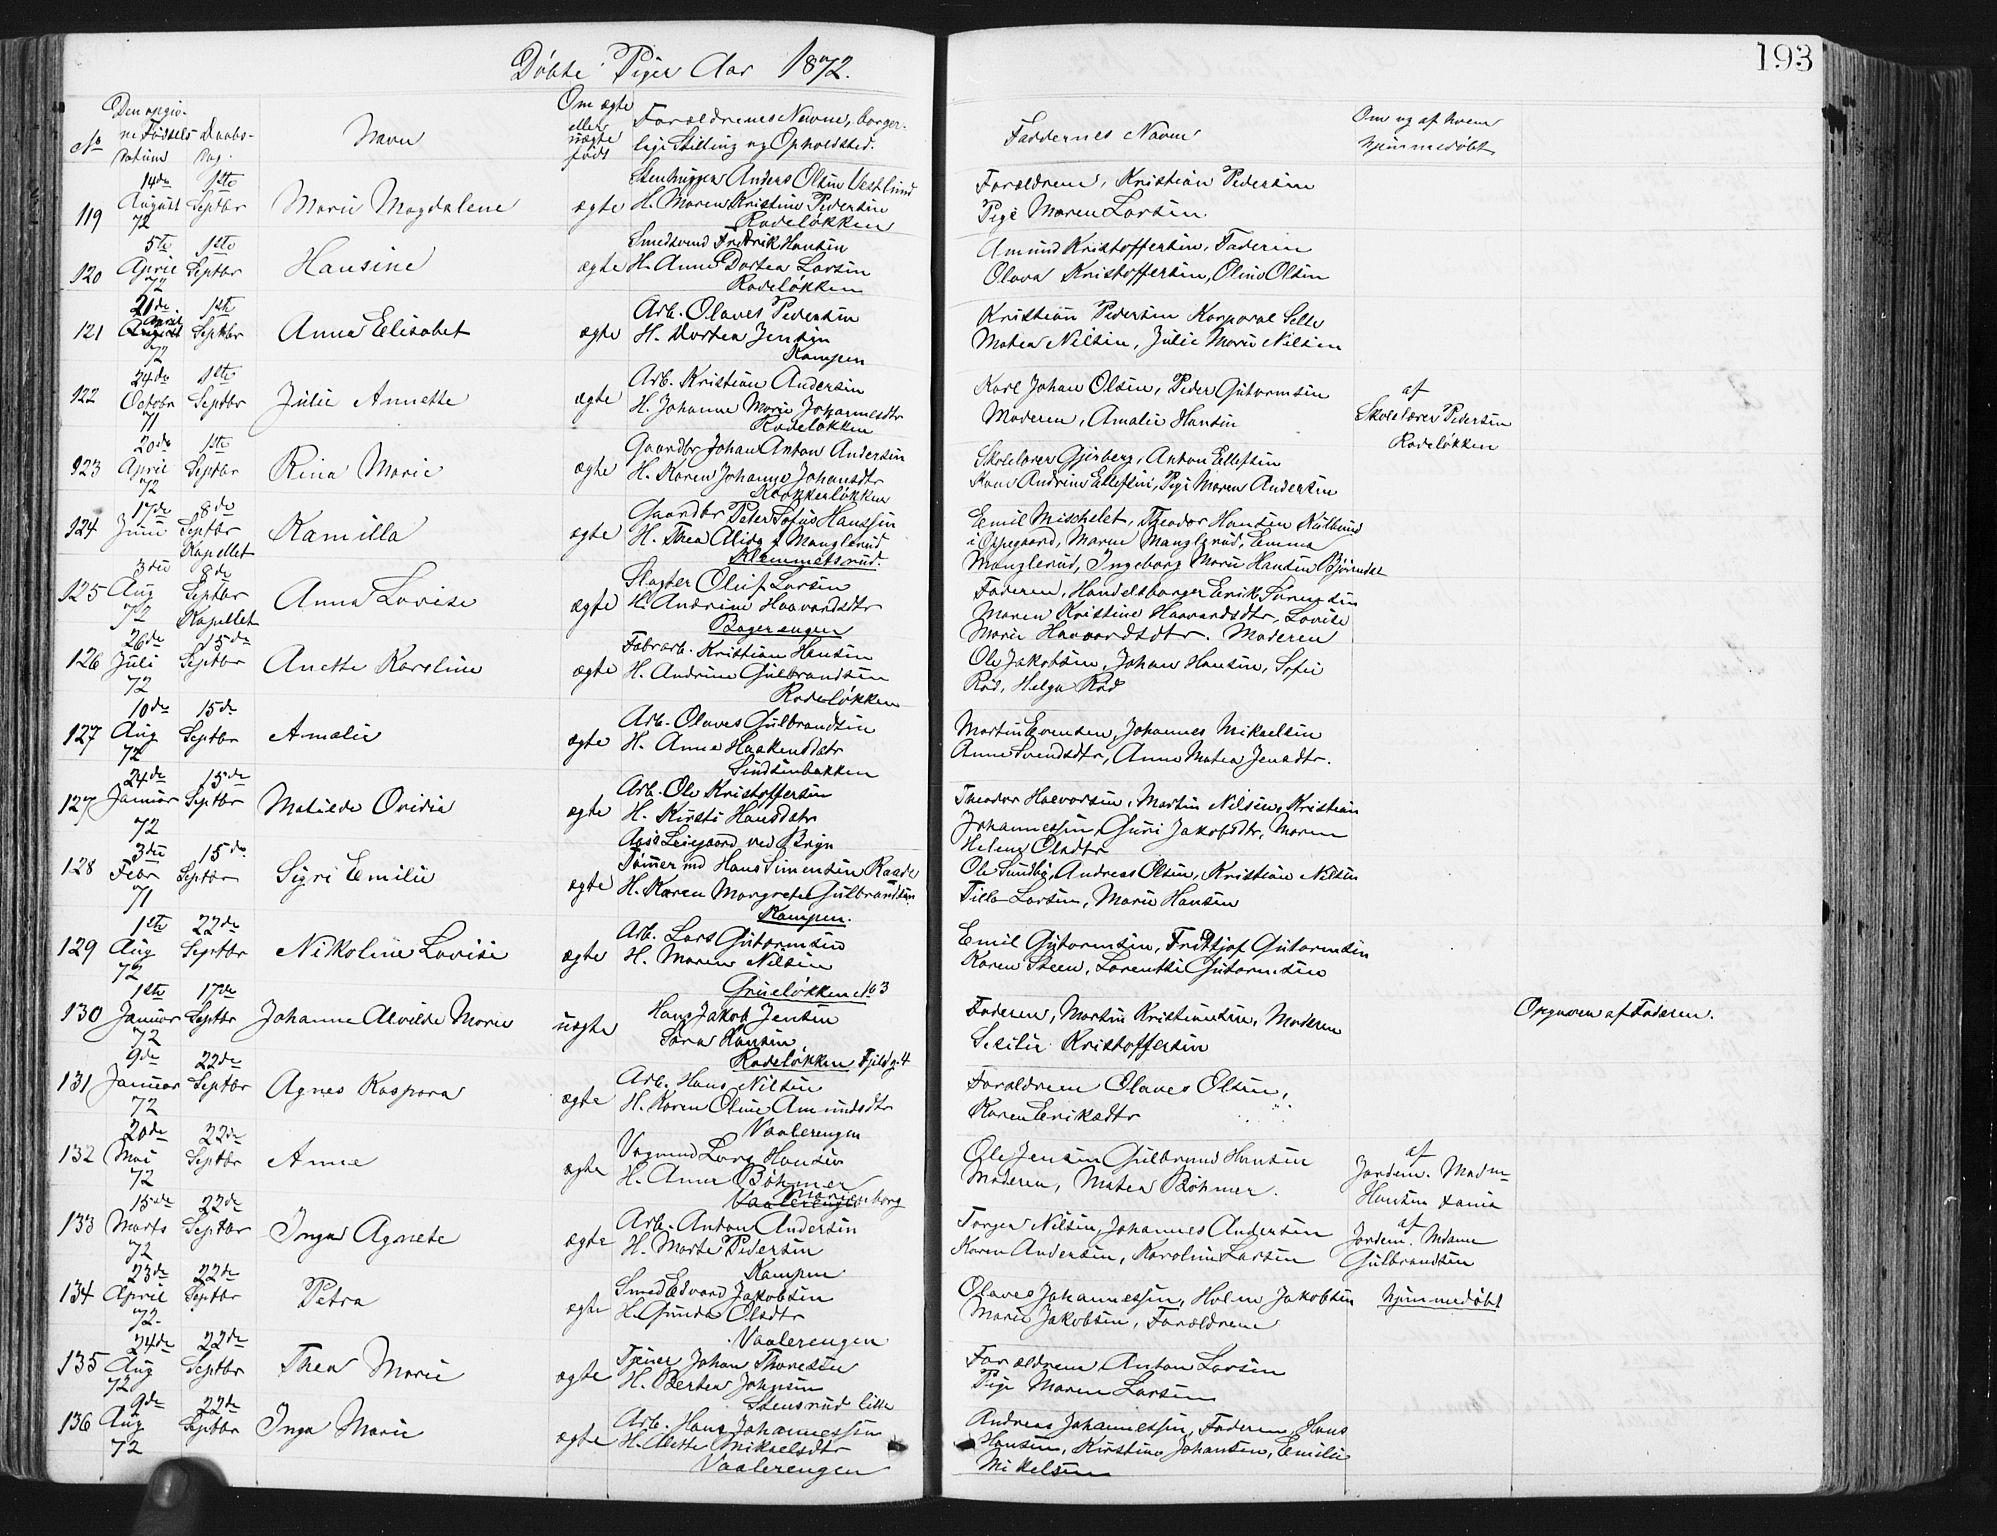 Døbte Piger Aar 1872.
193
No
Den opgiv-
ne Fødsels
Datum
Daabs-
Dag.
Navn
Om ægte
eller
uægte
født
Forældrenes Navne, borger-
lige Stilling og Opholdsted.
Faddernes Navne
Om og af hvem
hjemmedøbt
119
14de
August
72
1ste
Septbr
Marie Magdalene
ægte
Stenhugger Anders Olsen Vestlund
H. Maren Kristine Pedersen
Rodeløkken
Forældrene, Kristian Pedersen
Pige Maren Larsen.
120
5te
April
72
1ste
Septbr
Hansine
ægte
Smedsvend Fredrik Hansen
H. Anne Dortea Larsen
Rodeløkken
Amund Kristoffersen, Faderen
Olava Kristoffersen, Oline Olsen
121
21de
April
72
1ste
Septbr
Anna Elisabet
ægte
Arb. Olaves Pedersen
H. Dortea Jensen
Kampen
Kristian Pedersen Korporal Selte
Matea Nilsen, Julie Marie Nilsen
122
24de
Octobr
71
1ste
Septbr
Julie Annette
ægte
Arb. Kristian Andersen
H. Johanne Marie Johannesdtr
Rodeløkken
Karl Johan Olsen, Peder Gutormsen
Moderen, Amalie Hansen
af
Skolelærer Pedersen
Rodeløkken
123
20de
April
72
1ste
Septbr
Rina Marie
ægte
Gaardbr Johan Anton Andersen
H. Karen Johanne Johansdtr
Klokkerløkken
Skolelærer Gjerberg, Anton Ellefsen
Kone Andrine Ellefsen, Pige Maren Andersen
124
17de
Juni
8de
Septbr
Kapellet
Kamilla
ægte
Gaardbr Peter Sofus Hanssen
H. Thea Alida f Manglerud
Klemmetsrud.
Emil Mischelet, Theodor Hansen Kulbrud
i Oppegaard, Maren Manglerud, Emma
Manglerud, Ingeborg Marie Hansen Bjørndal
125
3die
Aug
72
8de
Septbr
Kapellet
Anna Lovise
ægte
Slagter Oluf Larsen
H. Andrine Haavardsdtr
Bagerengen
Faderen, Handelsborger Erik Sørensen
Maren Kristine Haavardsdtr, Lovise
Marie Haavardsdtr. Moderen
126
26de
Juli
72
15de
Septbr
Anette Karoline
ægte
Fabrarb. Kristian Hansen
H. Andrine Gulbrandsen
Rodeløkken
Ole Jakobsen, Johan Hansen, Sofie
Rød, Helga Rød
127
10de
Aug
72
15de
Septbr
Amalie
ægte
Arb. Olaves Gulbrandsen
H. Anne Haakensdatr
Sindsenbakken
Martin Evensen, Johannes Mikaelsen
Anne Svendsdtr, Anne Matea Jensdtr.
127
24de
Januar
72
15de
Septbr
Matilde Ovidia
ægte
Arb. Ole Kristoffersen
H. Kirsti Hansdatr
Aass Leiegaard ved Bryn
Theodor Halvorsen, Martin Nilsen, Kristian
Johannessen, Guri Jakobsdtr, Maren
Helene Olsdtr
128
3die
Febr
71
15de
Septbr
Sigri Emilie
ægte
Tømmermd Hans Simensen Raade
H. Karen Margrete Gulbrandsen
Kampen.
Ole Sundby, Andreas Olsen, Kristian Nilsen
Tilla Larsen, Marie Hansen
129
1ste
Aug
72
22de
Septbr
Nikoline Lovise
ægte
Arb. Lars Gutormsen
H. Maren Nilsen
Grueløkken No 3
Emil Gutormsen, Fritjof Gutormsen
Karen Steen, Lorentse Gutormsen
130
1ste
Januar
72
17de
Septbr
Johanne Alvilde Marie
uægte
Hans Jakob Jensen
Sara Hansen
Rodeløkken Fjeldg. 4
Faderen, Martin Kristiansen, Moderen
Sesilie Kristoffersen
Opgaven af Faderen.
131
9de
Januar
72
22de
Septbr
Agnes Kaspara
ægte
Arb. Hans Nilsen
H. Karen Oline Amundsdtr
Vaalerengen
Forældrene Olaves Olsen,
Karen Eriksdtr
132
20de
Mai
72
22de
Septbr
Anna
ægte
Vognmd Lars Hansen
H. Anne Bøhmer
Marienborg
Vaalerengen
Ole Jensen Gulbrand Hansen
Moderen, Matea Bøhmer.
af
Jordem. Madm
Hansen
133
15de
Marts
72
22de
Septbr
Inga Agnete
ægte
Arb. Anton Andersen
H. Marte Pedersen
Kampen
Torger Nilsen, Johannes Andersen
Karen Andersen, Karoline Larsen
af
Jordem. Mdme
Gulbrandsen
134
23de
April
72
22de
Septbr
Petra
ægte
Smed Edvard Jakobsen
H. Gunda Olsdtr
Vaalerengen
Olaves Johannessen, Helene Jakobsen
Marie Jakobsen, Forældrene
hjemmedøbt
135
24de
Aug
72
22de
Septbr
Thea Marie
ægte
Tjener Johan Thoresen
H. Berte Johnsen
Stensrud lille
Forældrene, Anton Larsen
Pige Maren Larsen
136
9de
Aug
72
22de
Septbr
Inga Marie
ægte
Arb. Hans Johannessen
H. Alette Mikaelsdtr
Vaalerengen
Andreas Johannessen, Faderen, Hans
Hansen, Kirstine Johansen, Emilie
Mikelsen